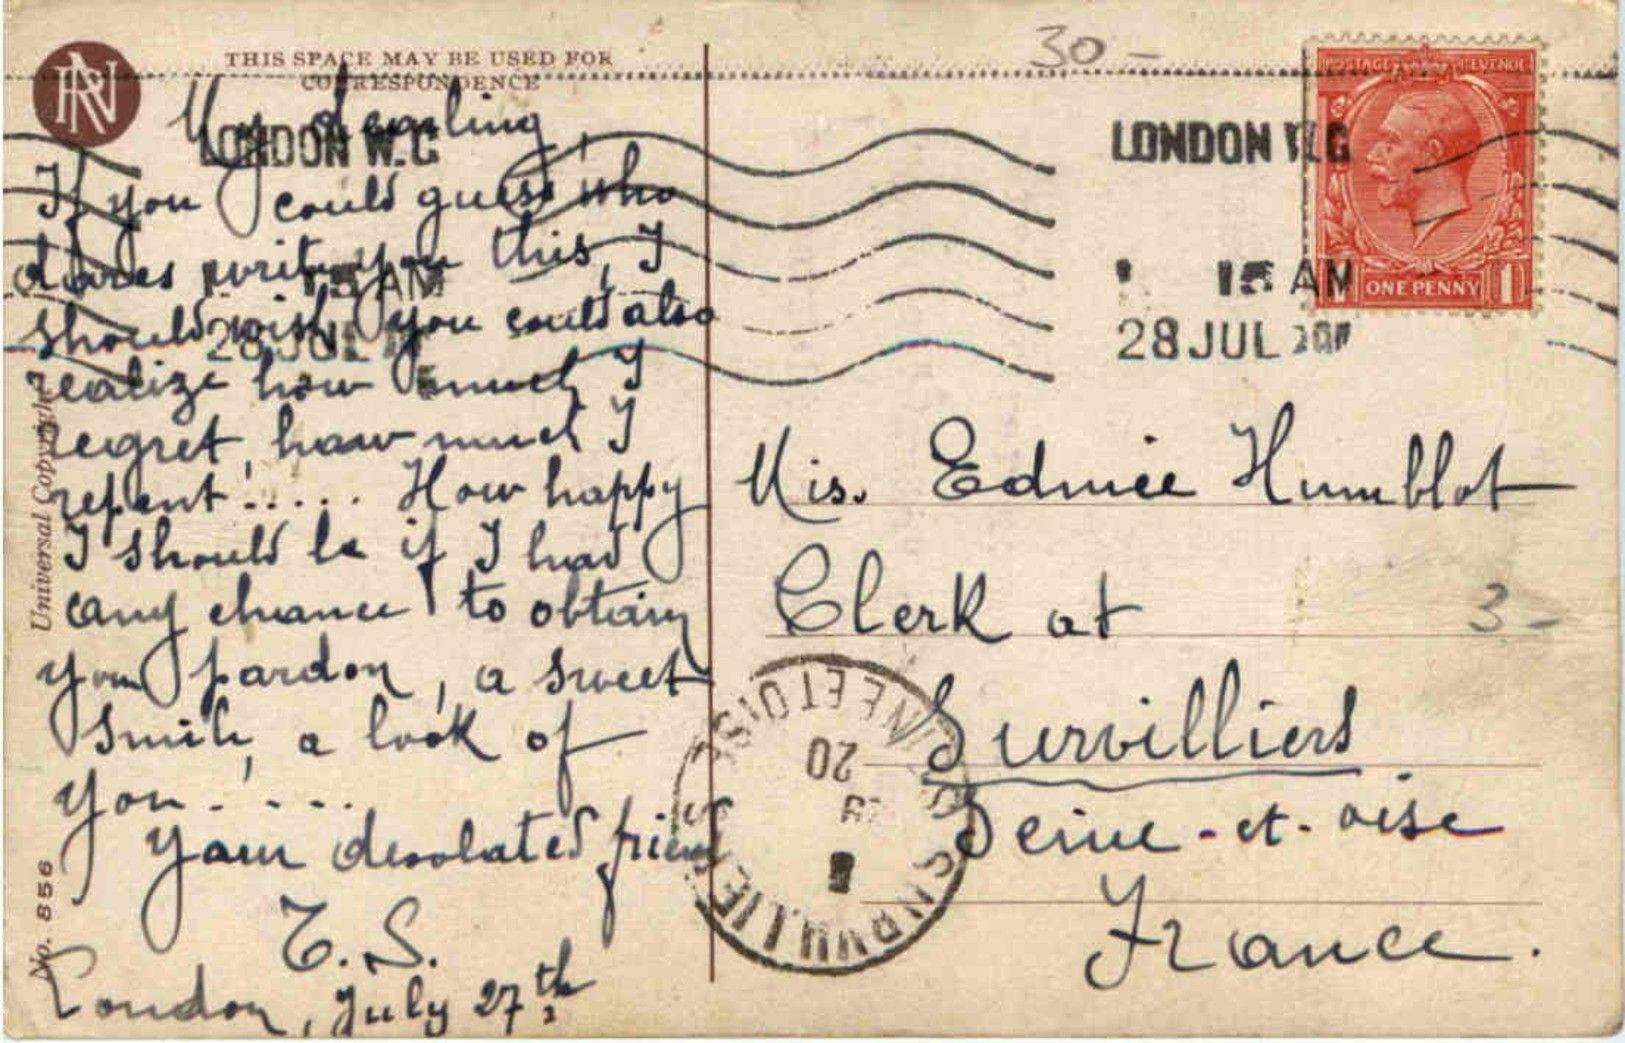 THIS SPACE MAY BE USED FOR
CORRESPONDENCE
My darling,
If you could guess who
dares write you this, I
should wish you could also
realize how much I
regret, how much I
repent!..... How happy
I should be if I had
any chance to obtain
your pardon, a sweet
smile, a look of
you.!....
Your desolated friend
T. S.
London, July 27th
Universal Copyright
No. 856
LONDON W.C
15 AM
28 JUL
30 -
LONDON W.C
15 AM
28 JUL
POSTAGE REVENUE
ONE PENNY
1
Mis. Edmée Humblot
Clerk at
3 -
Survilliers
Seine-et-oise
France.
SURVILLIERS
SEINE ET OISE
20